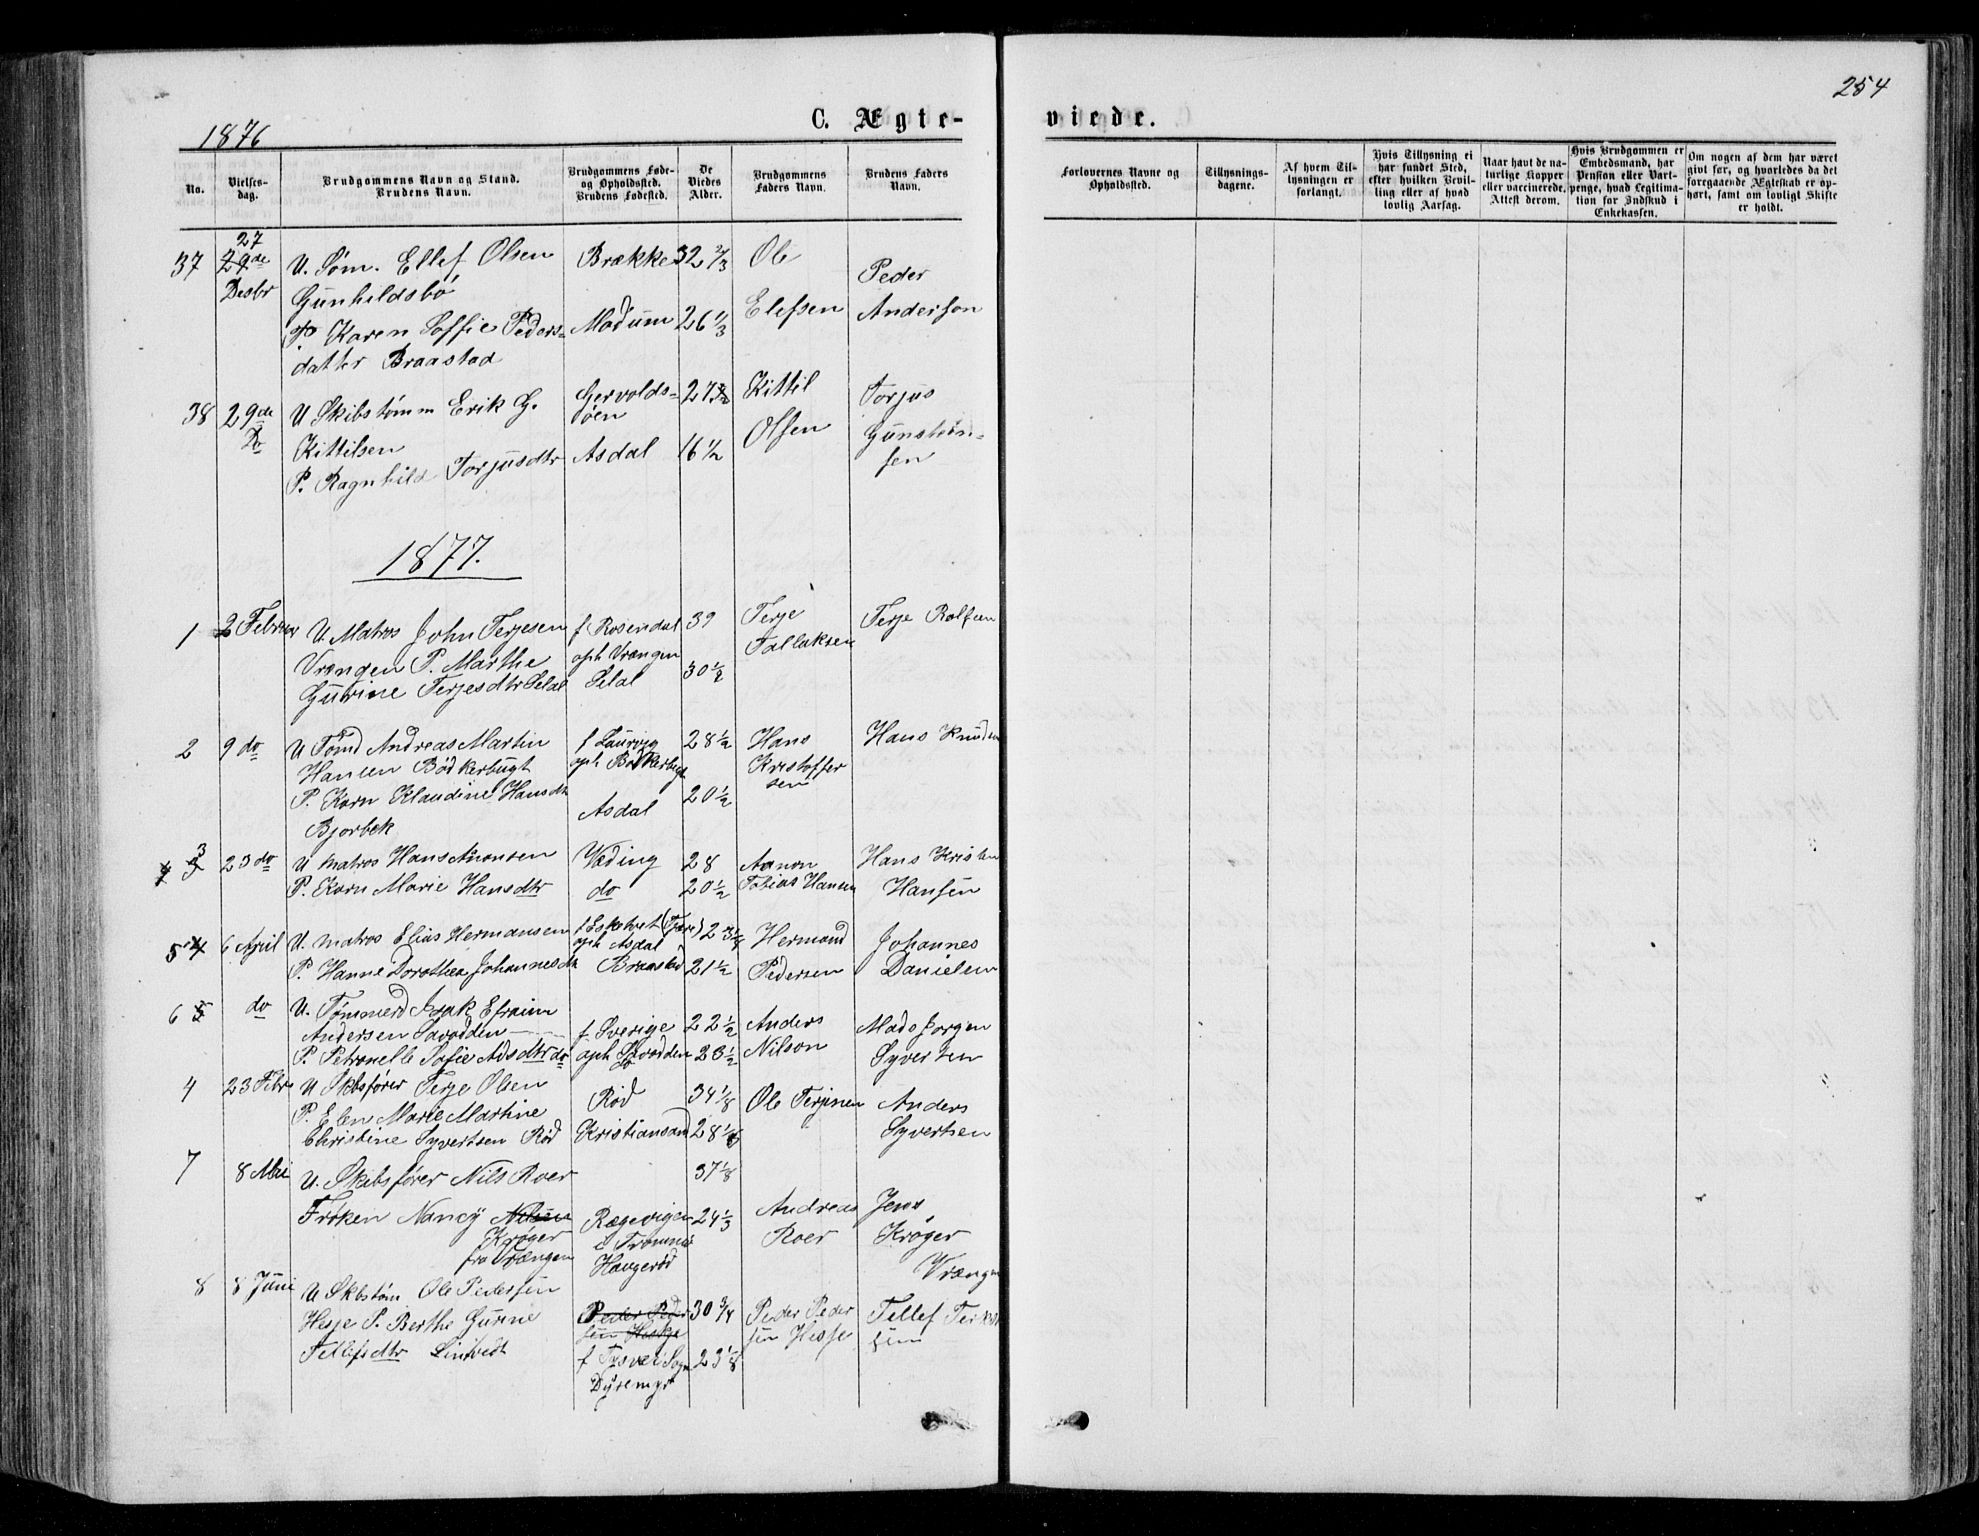 254
1876
C. Ægte-
viede.
No.
Vielses-
dag.
Brudgommens Navn og Stand.
Brudens Navn.
Brudgommens Føde-
og Opholdssted.
Brudens Fødested.
De
Viedes
Alder.
Brudgommens
Faders Navn.
Brudens Faders
Navn.
Forlovernes Navne og
Opholdssted.
Tillysnings-
dagene.
Af hvem Til-
lysningen er
forlangt.
Hvis Tillysning ei
har fundet Sted,
efter hvilken Bevil-
ling eller af hvad
lovlig Aarsag.
Naar havt de na-
turlige Kopper
eller vaccinerede.
Attest derom.
Hvis Brudgommen er
Embedsmand, har
Pension eller Vart-
penge, hvad Legitima-
tion for Indskud i
Enkekassen.
Om nogen af dem har været
gift før, og hvorledes da det
foregaaende Ægteskab er op-
hørt, samt om lovligt Skifte
er holdt.
37 27 29de Desbr
U. Søm. Ellef Olsen
Gunhildsbö
P Karen Soffie Peders-
datter Braastad
Brække
Modum
32 2/3
26 1/3
Ole
Elefsen
Peder
Anderson
38 29de Do
U Skibstømm Erik G.
Kittilsen
P. Ragnhild Torjusdtr
Gervolds-
öen
Asdal
27
16 1/2
Kittil
Olsen
Torjus
Gunsten-
sen
1877.
1 2 Februar
U. Matros John Terjesen
Vrængen P. Marthe
Gurine Terjesdtr Selal
f Rosendal
oph Vrængen
Selal
39
30 1/2
Terje
Tallaksen
Terje Rolfsen
2 9 do
U Tømd Andreas Martin
Hansen Bødkerbugt
P. Karn Klaudine Hansdtr
Bjorbek
f Laurvig
oph Bødkerbugt
Asdal
28 1/2
20 1/2
Hans
Kristoffer
sen
Hans Knudsen
3 23 do
U matros Hans Anonsen
P. Karn Marie Hansdtr
Væding
do
28
20 1/2
Aanon
Tobias Hansen
Hans Kristen
Hansen
5 4 6 April
U. matros Elias Hermansen
P. Hanne Dorothea Johannesdtr
oph Asdal
Braastad
23
21 1/2
Hermand
Pedersen
Johannes
Danielsen
6 5 do
U. Tømmerd Isak Efraim
Andersen Savodden
P. Petronelle Sofie Adsdtr do
f. Sverige
oph Savodden
22 1/2
23 1/2
Anders
Nilson
Mads Jorgen
Syvertsen
4 23 Febr
U Skbsfører Terje Olsen
P. Elen Marie Martine
Christine Syvertsen Rød
Rød
Kristiansand
34 1/8
28 1/6
Ole Terjesen
Anders
Syvertsen
7 8 Mai
U. Skibsfører Nils Roer
Frøken Nancy Nilsen
Krøger
fra Vrængen
Rægevigen
Tromø
Havgerød
37 1/8
24 1/3
Andreas
Roer
Jens
Krøger
Vrængen
8 8 Juni
U Skbstøm Ole Pedersen
Hisje P. Berthe Gurine
Tellefsdtr Linsvedt
Peder Peder
sen Hisje
f Tysvær Sogn
Dyremyr
30 3/4
23 1/8
Peder Peder
sen Hisje
Tellef Terkel
sen